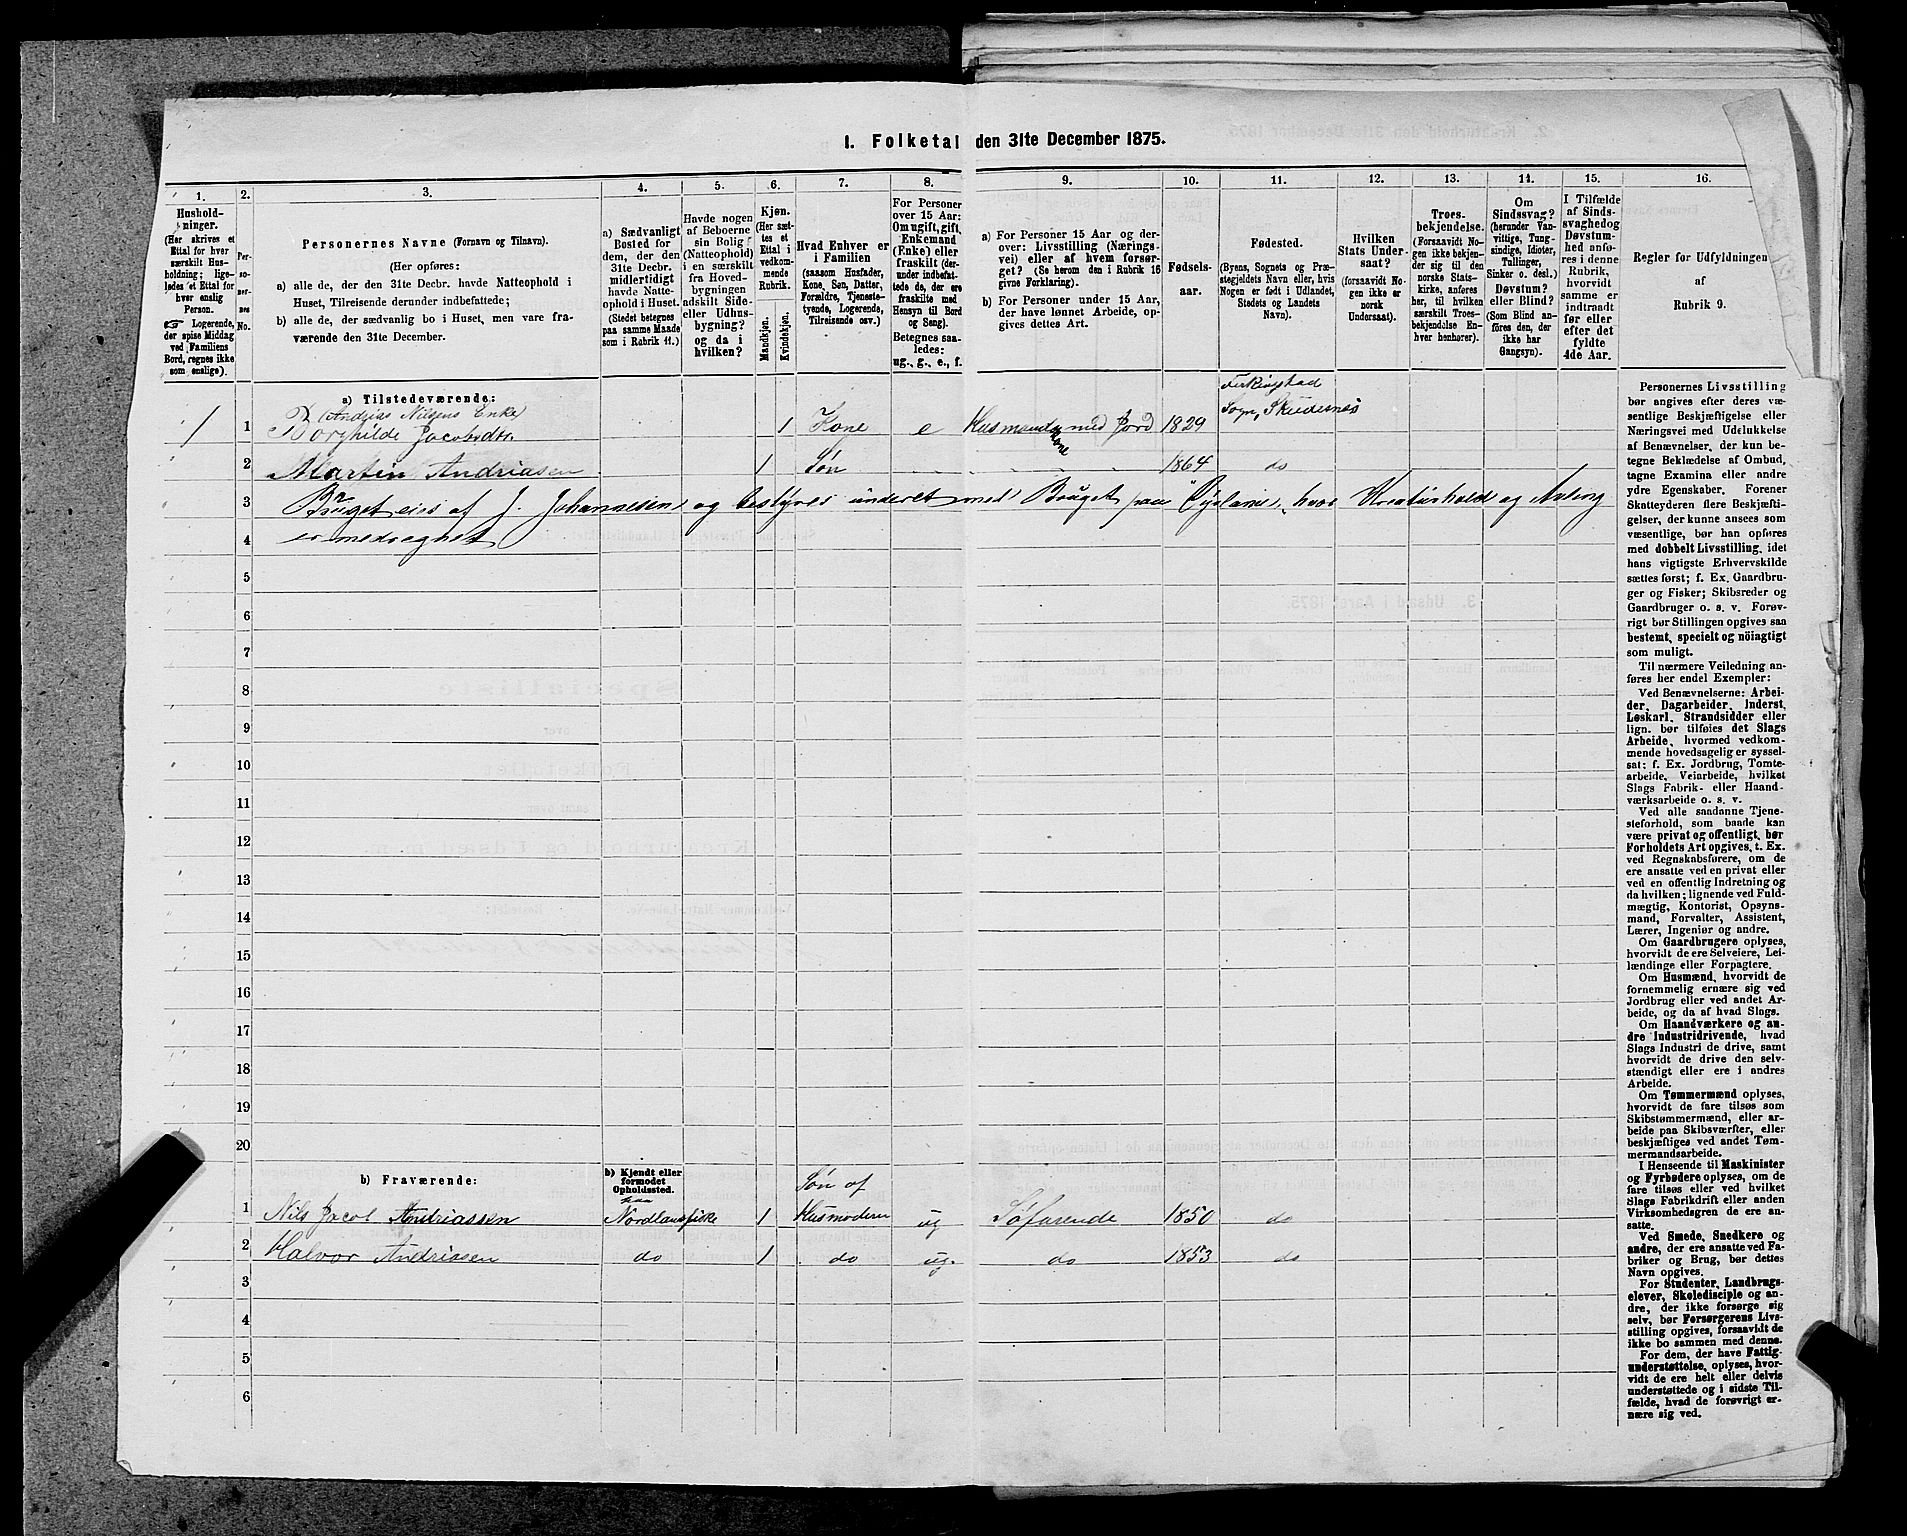 1. Folketal den 31te December 1875.
1.
2.
3.
4.
5.
6.
7.
8.
9.
10.
11.
12.
13.
14.
15.
16.
Hushold-
ninger.
(Her skrives et
Ettal for hver
særskilt Hus-
holdning; lige-
ledes et Ettal for
hver enslig
Person.
☞ Logerende,
der spise Middag
ved Familiens
Bord, regnes ikke
som enslige).
Per-
so-
ner-
nes
No.
Personernes Navne (Fornavn og Tilnavn).
(Her opføres:
a) alle de, der den 31te Decbr. havde Natteophold i
Huset, Tilreisende derunder indbefattede;
b) alle de, der sædvanlig bo i Huset, men vare fra-
værende den 31te December.
a) Sædvanligt
Bosted for
dem, der den
31te Decbr.
midlertidigt
havde Natte-
ophold i Huset.
(Stedet betegnes
paa samme Maade
som i Rubrik 11.)
Havde nogen
af Beboerne
sin Bolig
(Natteophold)
i en særskilt
fra Hoved-
bygningen
adskilt Side-
eller Udhus-
bygning?
og da i
hvilken?
Kjøn.
(Her sæt-
tes et
Ettal i
vedkom-
mende
Rubrik.
Mandkjøn.
Kvindekjøn.
Hvad Enhver er
i Familien
(saasom Husfader,
Kone, Søn, Datter,
Forældre, Tjeneste-
tyende, Logerende,
Tilreisende osv.)
For Personer
over 15 Aar:
Om ugift, gift,
Enkemand
(Enke) eller
fraskilt (der-
under indbefat-
tede de, der ere
fraskilte med
Hensyn til Bord
og Seng).
Betegnes saa-
ledes:
ug., g., e., f.
a) For Personer 15 Aar og der-
over: Livsstilling (Nærings-
vei) eller af hvem forsør-
get? (Se herom den i Rubrik 16
givne Forklaring).
b) For Personer under 15 Aar,
der have lønnet Arbeide, op-
gives dettes Art.
Fødsels-
aar.
Fødested.
(Byens, Sognets og Præ-
stegjeldets Navn eller, hvis
Nogen er født i Udlandet,
Stedets og Landets
Navn).
Hvilken
Stats Under-
saat?
(forsaavidt No-
gen ikke er
norsk
Undersaat).
Troes-
bekjendelse.
(Forsaavidt No-
gen ikke bekjen-
der sig til den
norske Stats-
kirke, anføres
her, til hvilken
særskilt Troes-
bekjendelse En-
hver henhører).
Om
Sindssvag?
(herunder Van-
vittige, Tung-
sindige, Idioter,
Tullinger,
Sinker o. desl.)
Døvstum?
eller Blind?
(Som Blind an-
føres den, der
ikke har
Gangsyn).
I Tilfælde
af Sinds-
svaghed og
Døvstum-
hed anfø-
res i denne
Rubrik,
hvorvidt
samme er
indtraadt
før eller
efter det
fyldte
4de Aar.
Regler for Udfyldningen
af
Rubrik 9.
a) Tilstedeværende:
(Andrias Nilsens Enke)
1 1 Borghilde Jacobsdtr. 1 Kone e Husmands med Jord 1829 Ferkingstad
kone
Sogn, Skudesnes
2 Martin Andriasen 1 Søn 1864 do
3 Bruget eies af J. Johannesen og bestyres underet med Bruget paa hvor Kreaturhold og Avling
4 er medregnet
5
6
7
8
9
10
11
12
13
14
15
16
17
18
19
20
b) Fraværende:
b) Kjendt eller
formodet
Opholdssted.
1 Nils Jacob Andriassen paa Nordlansfiske 1 Søn af Husmoderen ug Søfarende 1850 do
2 Halvor Andriasen do 1 do ug. do 1853 do
3
4
5
6
Personernes Livsstilling
bør angives efter deres væ-
sentlige Beskjæftigelse eller
Næringsvei med Udelukkelse
af Benævnelser, der kun be-
tegne Beklædelse af Ombud,
tagne Examina eller andre
ydre Egenskaber. Forener
Skatteyderen flere Beskjæfti-
gelser, der kunne ansees som
væsentlige, bør han opføres
med dobbelt Livsstilling, idet
hans vigtigste Erhvervskilde
sættes først; f. Ex. Gaardbru-
ger og Fisker; Skibsreder og
Gaardbruger o. s. v. Forøv-
rigt bør Stillingen opgives saa
bestemt, specielt og nöiagtigt
som muligt.
Til nærmere Veiledning an-
føres her endel Exempler:
Ved Benævnelserne: Arbei-
der, Dagarbeider, Inderst,
Løskarl, Strandsidder eller
lign. bør tilføies det Slags
Arbeide, hvormed vedkom-
mende hovedsagelig er syssel-
sat: f. Ex. Jordbrug, Tomte-
arbeide, Veiarbeide, hvilket
Slags Fabrik- eller Haand-
værksarbeide o. s. v.
Ved alle saadanne Tjene-
steforhold, som baade kan
være privat og offentligt, bør
Forholdets Art opgives, t. Ex.
ved Regnskabsførere, om de
ere ansatte ved en privat eller
ved en offentlig Indretning og
da hvilken; lignende ved Fuld-
mægtig, Kontorist, Opsyns-
mand, Forvalter, Assistent,
Lærer, Ingeniør og andre.
Om Gaardbrugere oplyses,
hvorvidt de ere Selveiere, Lei-
lændinge eller Forpagtere.
Om Husmænd, hvorvidt de
fornemmelig ernære sig ved
Jordbrug eller ved andet Ar-
beide, og da af hvad Slags.
Om Haandværkere og an-
dre Industridrivende, hvad
Slags Industri de drive, samt
hvorvidt de drive den selv-
stændigt eller ere i andres
Arbeide.
Om Tømmermænd oplyses,
hvorvidt de fare tilsøs som
Skibstømmermænd, eller ar-
beide paa Skibsværfter, eller
beskjæftiges ved andet Tøm-
mermandsarbeide.
I Henseende til Maskinister
og Fyrbødere oplyses, om de
fare tilsøs eller ved hvilket
Slags Fabrikdrift eller anden
Virksomhedsgren de ere an-
satte.
Ved Smede, Snedkere og
andre, der ere ansatte ved Fa-
briker og Brug, bør dettes
Navn opgives.
For Studenter, Landbrugs-
elever, Skoledisciple og an-
dre, der ikke forsørge sig
selv, bør Forsørgerens Livs-
stilling opgives, forsaavidt de
ikke bo sammen med denne.
For dem, der have Fattig-
understøttelse, oplyses, hvor-
vidt de ere helt eller delvis
understøttede og i sidste Til-
fælde, hvad de forøvrigt er-
nære sig ved.